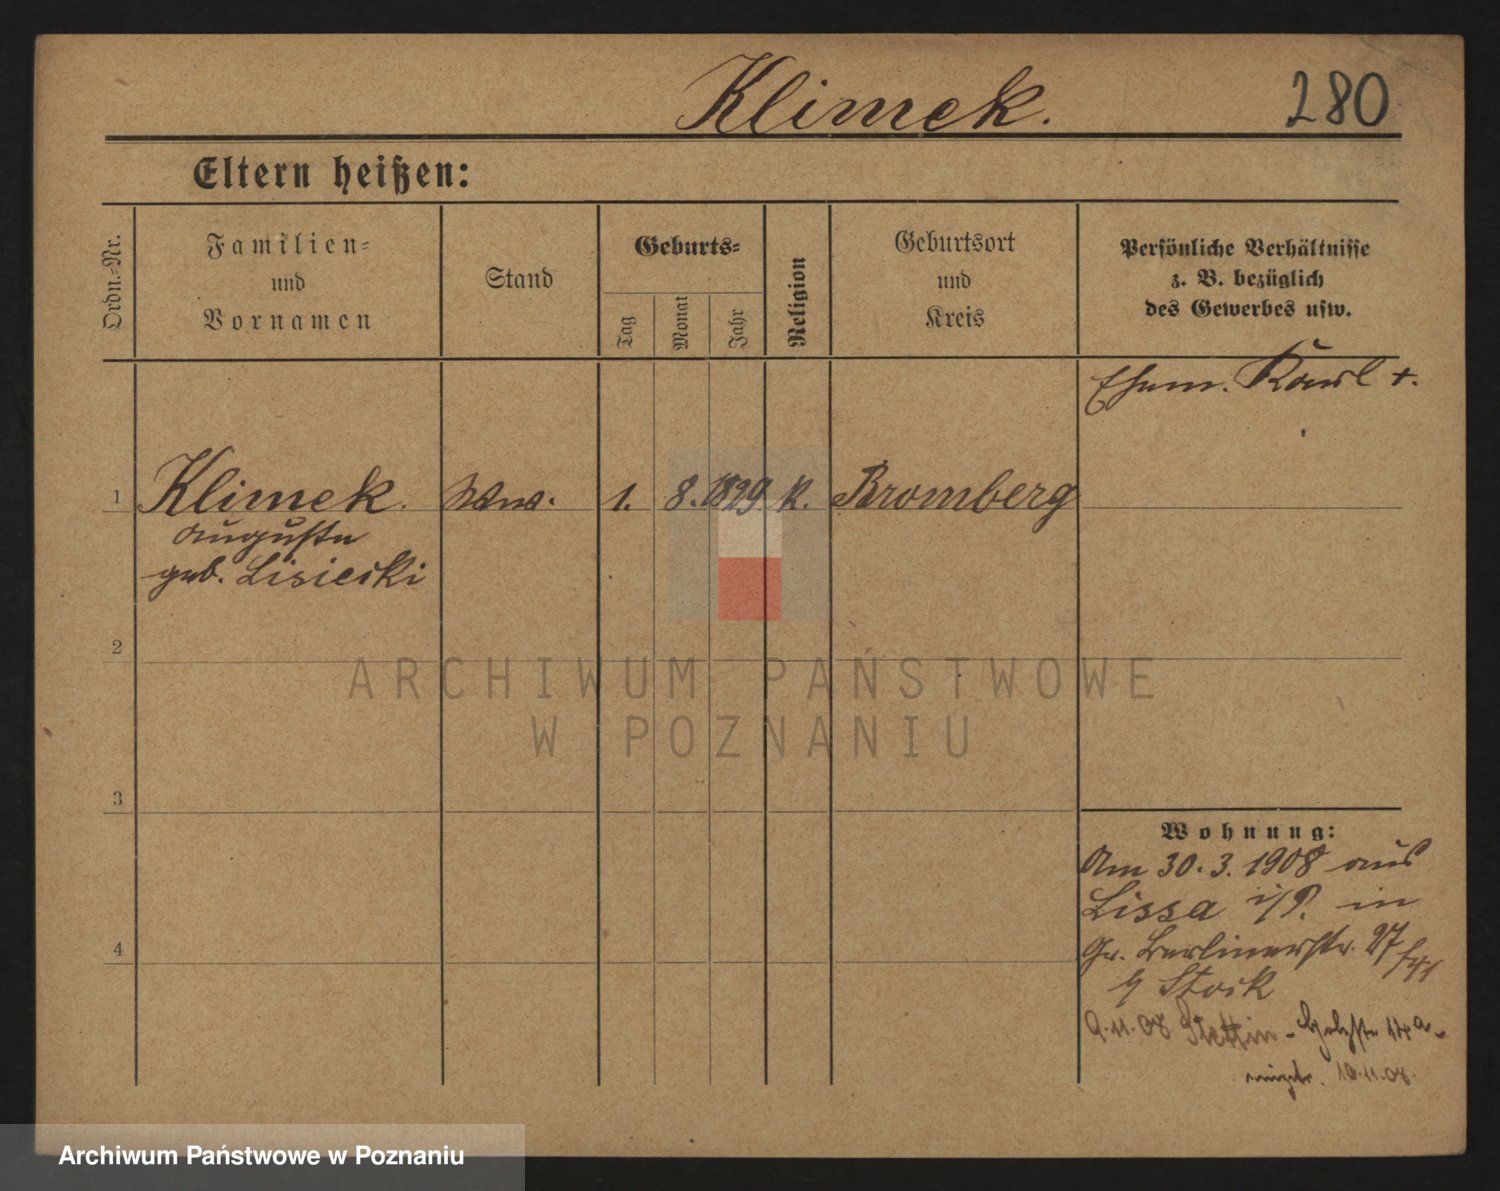 Klimek. 280
Eltern heißen:
Ordn.-Nr.
Familien-
und
Vornamen
Stand
Geburts-
Tag
Monat
Jahr
Religion
Geburtsort
und
Kreis
Persönliche Verhältnisse
z. B. bezüglich
des Gewerbes usw.
Ehem. Karl +.
1 Klimek. Ww. 1. 8. 1829 K. Bromberg
Auguste
geb. Lisiecki
2
3
4
Wohnung:
Am 30.3.1908 aus
Lissa i/P. in
Gr. Berlinerstr. 97
b/ Stock
9.11.08 Stettin -
10.11.08.
ARCHIWUM PAŃSTWOWE
W POZNANIU
Archiwum Państwowe w Poznaniu